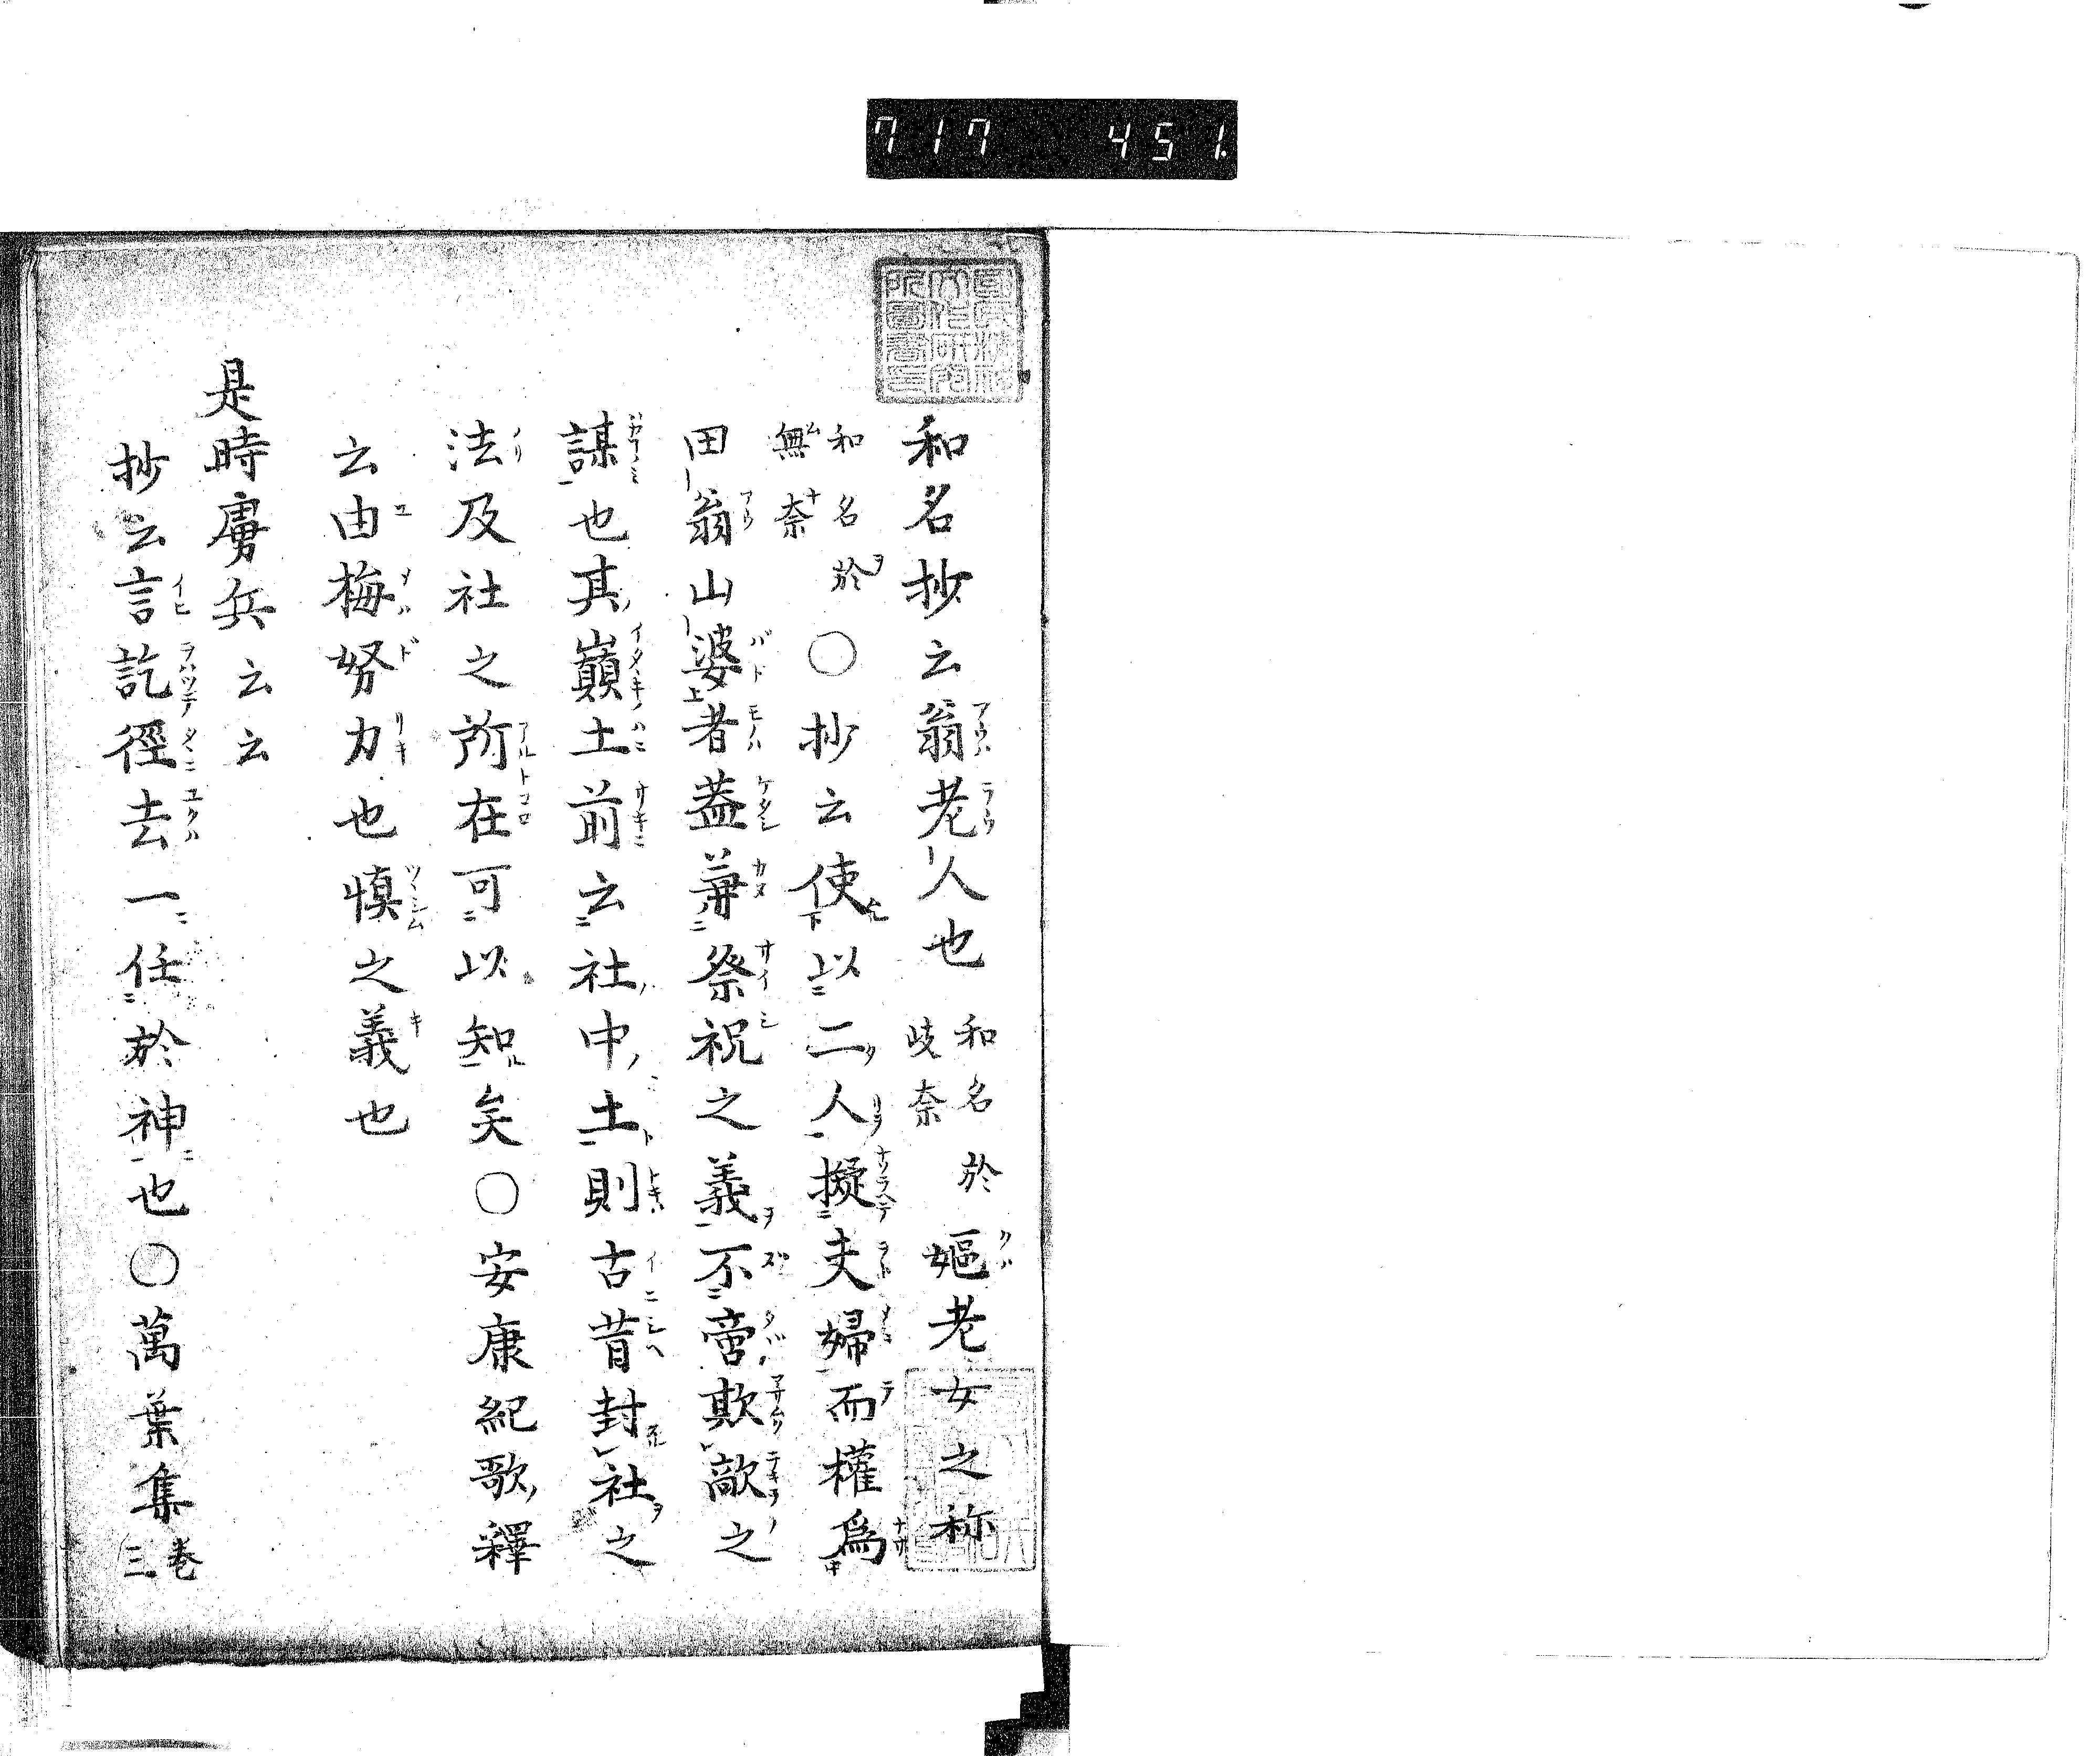 717 451
和名抄云翁老人也和名於岐奈嫗老女之称
和名於無奈〇抄云使以二人擬夫婦而權爲
田翁山婆者蓋兼祭祝之義不啻欺敵之
謀也其巓土前云社中土則古昔封社之
法及社之所在可以知矣〇安康紀歌釋
云由梅努力也慎之義也
是時虜兵云云
抄云言訖徑去一任於神也〇萬葉集卷三